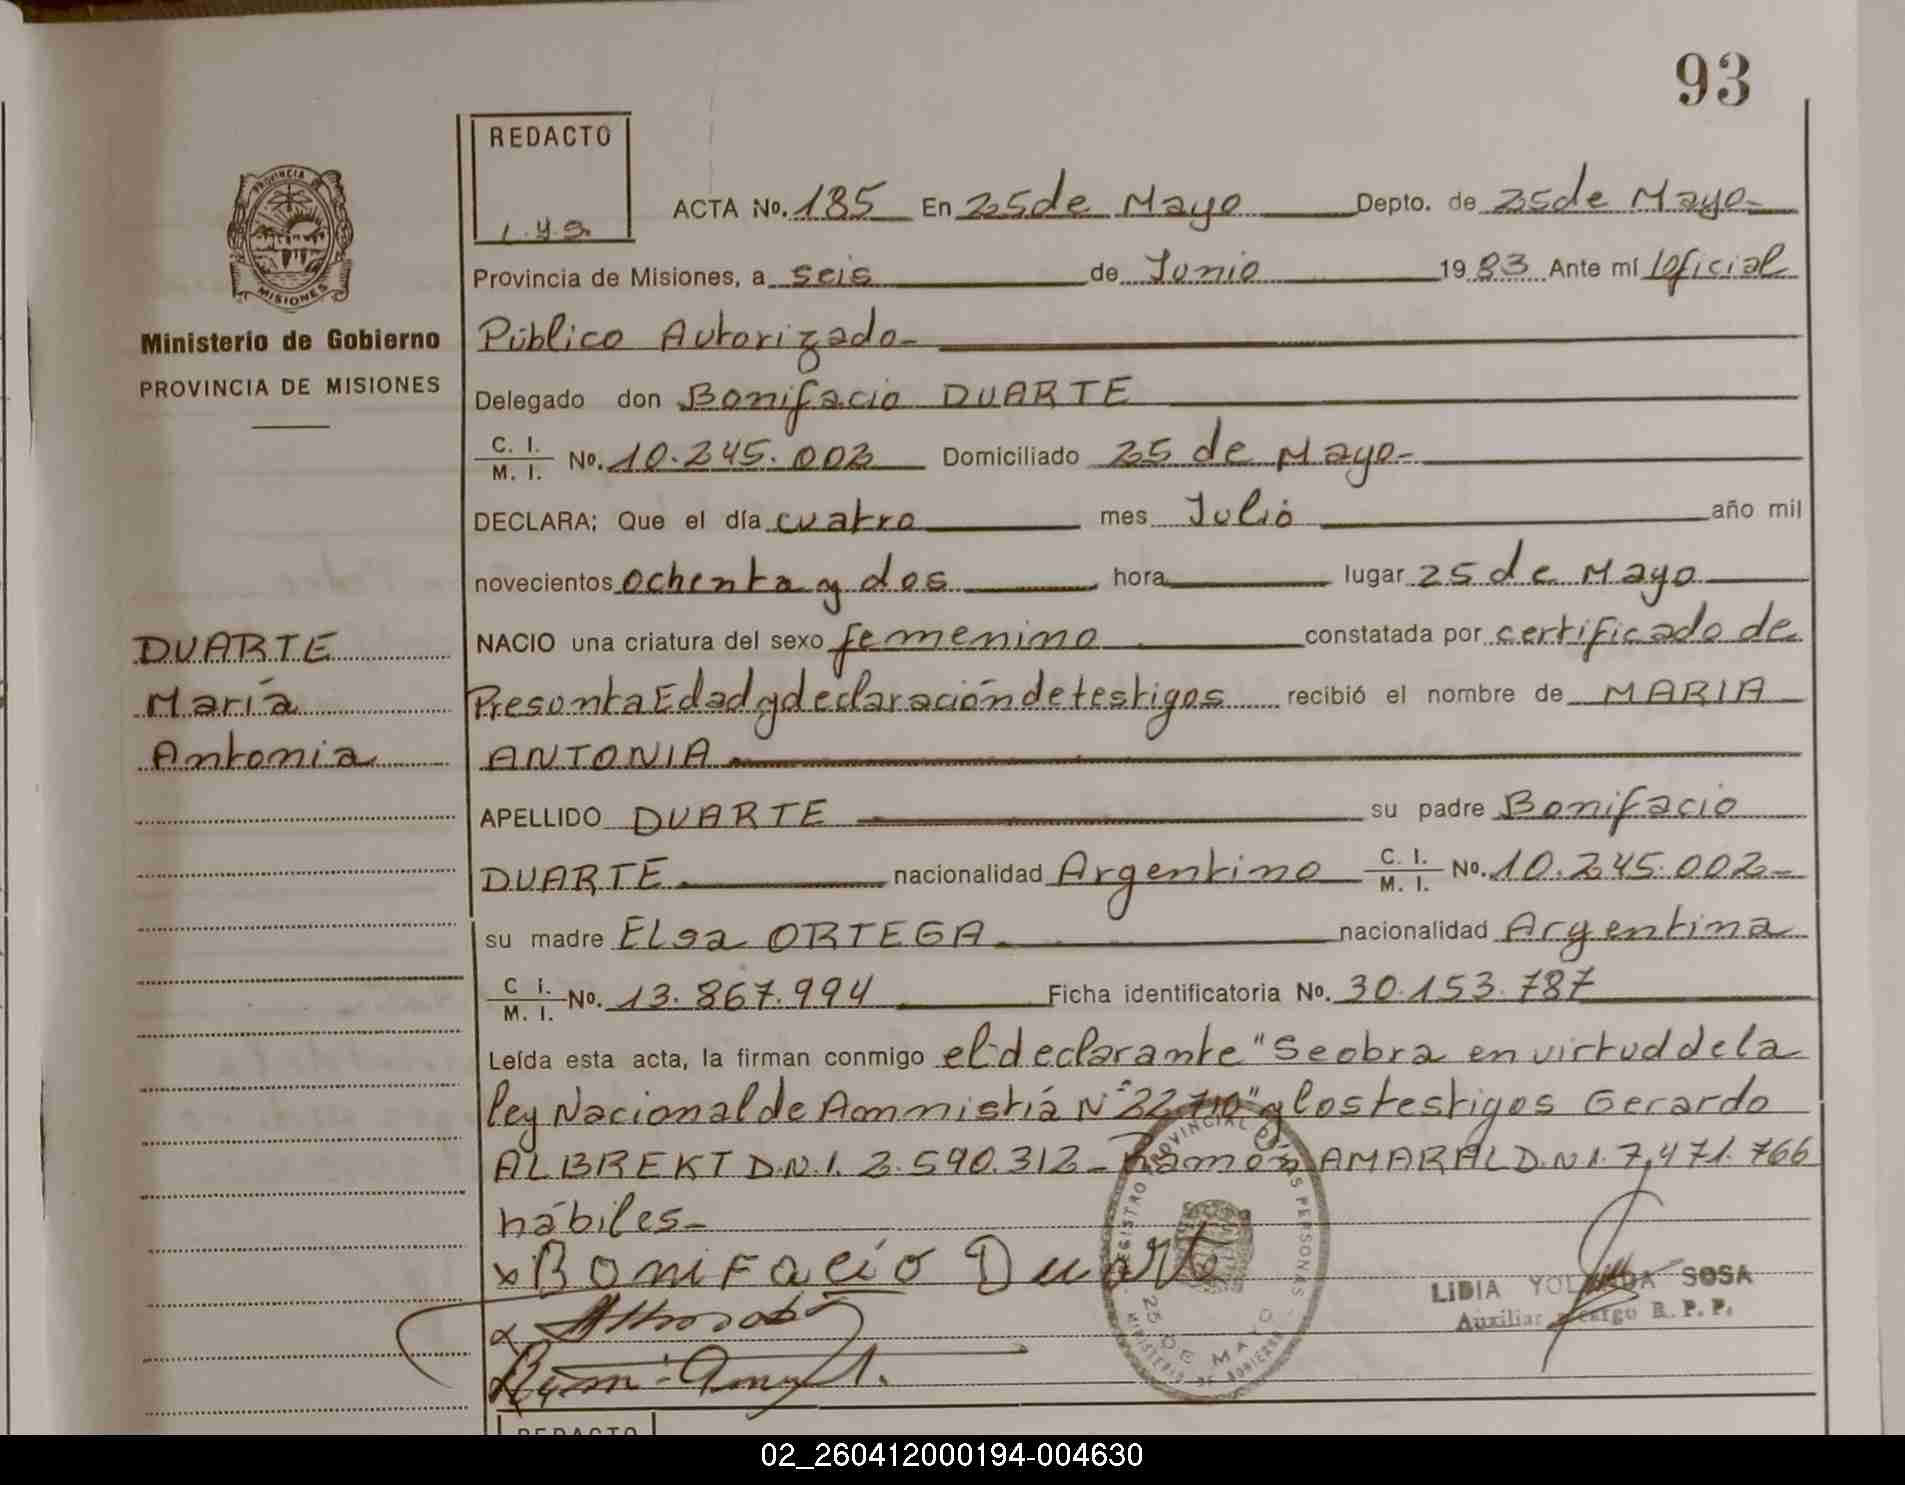 93
REDACTO
L.Y.S.
ACTA No. 185 En 25 de Mayo Depto. de 25 de Mayo-
Provincia de Misiones, a seis de Junio 1983 Ante mí Ioficial
Público Autorizado-
Delegado don Bonifacio DUARTE
C. I.
M. I. No. 10.245.002 Domiciliado 25 de Mayo-
DECLARA; Que el día cuatro mes Julio año mil
novecientos ochenta y dos hora lugar 25 de Mayo
NACIO una criatura del sexo femenino constatada por certificado de
Presunta Edad y declaración de testigos recibió el nombre de MARIA
ANTONIA
APELLIDO DUARTE su padre Bonifacio
DUARTE nacionalidad Argentino C. I. M. I. No. 10.245.002-
su madre Elsa ORTEGA nacionalidad Argentina
C I. M. I. No. 13.867.994 Ficha identificatoria No. 30.153.787
Leída esta acta, la firman conmigo el declarante "Se obra en virtud de la
ley Nacional de Ammistiá Nº 22.710" y los testigos Gerardo
ALBREKT D.N.I. 2.590.312- Ramón AMARAL D.N.I. 7,471.766
hábiles-
x Bonifacio Duarte
PROVINCIA
MISIONES
Ministerio de Gobierno
PROVINCIA DE MISIONES
DUARTE
María
Antonia
REGISTRO PROVINCIAL DE LAS PERSONAS
25 DE MAYO
MINISTERIO DE GOBIERNO
LIDIA YOLANDA SOSA
Auxiliar R. P. P.
REDACTO
02_260412000194-004630